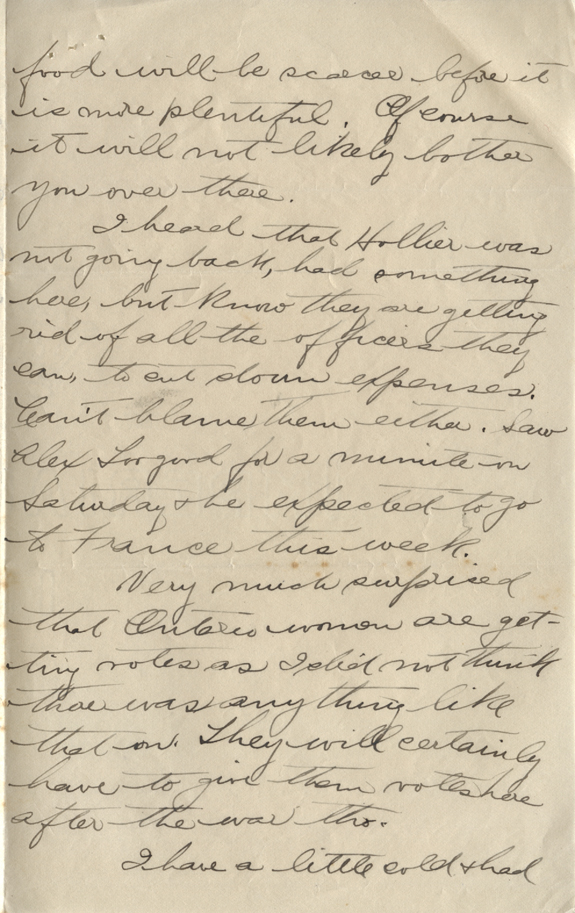 food will be scarcer before it
is more plentiful. Of course
it will not likely bother
you over there.
I heard that Hollier was
not going back, had something
here, but know they are getting
rid of all the officers they
can, to cut down expenses.
Can't blame them either. Saw
Alex for a minute on
Saturday & he expected to go
to France this week.
Very much surprised
that Ontario women are get-
ting votes as I did not think
there was anything like
that on. They will certainly
have to give them votes here
after the war tho.
I have a little cold & had